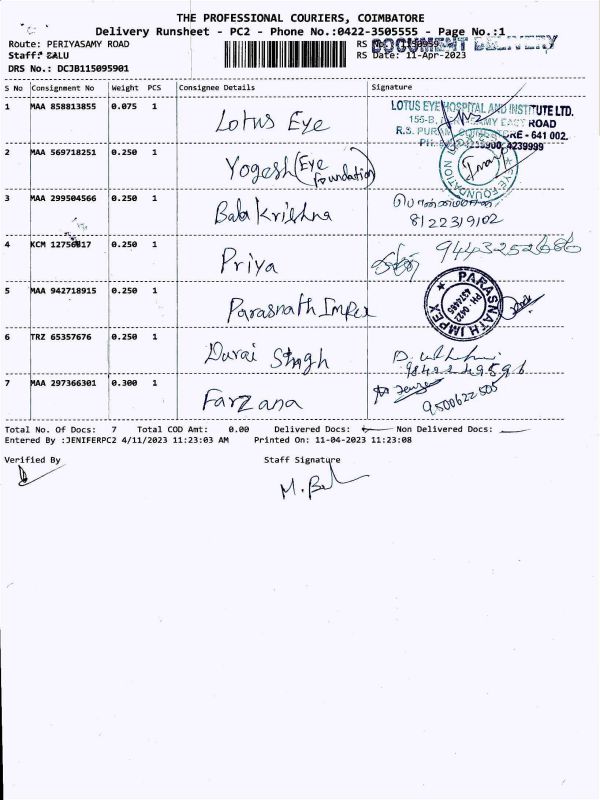 THE PROFESSIONAL COURIERS, COIMBATORE
Delivery Runsheet - PC2 - Phone No.:0422-3505555 - Page No.:1
Route: PERIYASAMY ROAD
RS No.:
DOCUMENT DELIVERY
Staff:
RS Date: 11-Apr-2023
DRS No.: DCJB115095901
S No Consignment No Weight PCS Consignee Details Signature
1 MAA 858813855 0.075 1 Lotus Eye
LOTUS EYE HOSPITAL AND INSTITUTE LTD.
EAST ROAD
R.S. PURAM, COIMBATORE - 641 002.
4239999
2 MAA 569718251 0.250 1 Yogesh (Eye foundation)
EYE FOUNDATION
3 MAA 299504566 0.250 1 Bala Krishna
8122319102
4 KCM 0.250 1 Priya
5 MAA 942718915 0.250 1 Parasnath Impex
PARASNATH IMPEX
PH: 0422
6 TRZ 65357676 0.250 1 Durai Singh
7 MAA 297366301 0.300 1 Farzana
9500622505
Total No. Of Docs: 7 Total COD Amt: 0.00 Delivered Docs: Non Delivered Docs:
Entered By :JENIFERPC2 4/11/2023 11:23:03 AM Printed On: 11-04-2023 11:23:08
Verified By Staff Signature